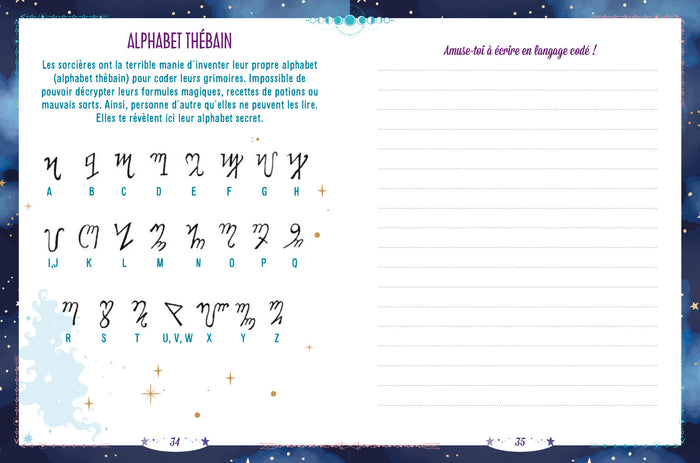 ALPHABET THÉBAIN
Les sorcières ont la terrible manie d'inventer leur propre alphabet
(alphabet thébain) pour coder leurs grimoires. Impossible de
pouvoir décrypter leurs formules magiques, recettes de potions ou
mauvais sorts. Ainsi, personne d'autre qu'elles ne peuvent les lire.
Elles te révèlent ici leur alphabet secret.
A B C D E F G H
I,J K L M N O P Q
R S T U, V, W X Y Z
34
Amuse-toi à écrire en langage codé !
35